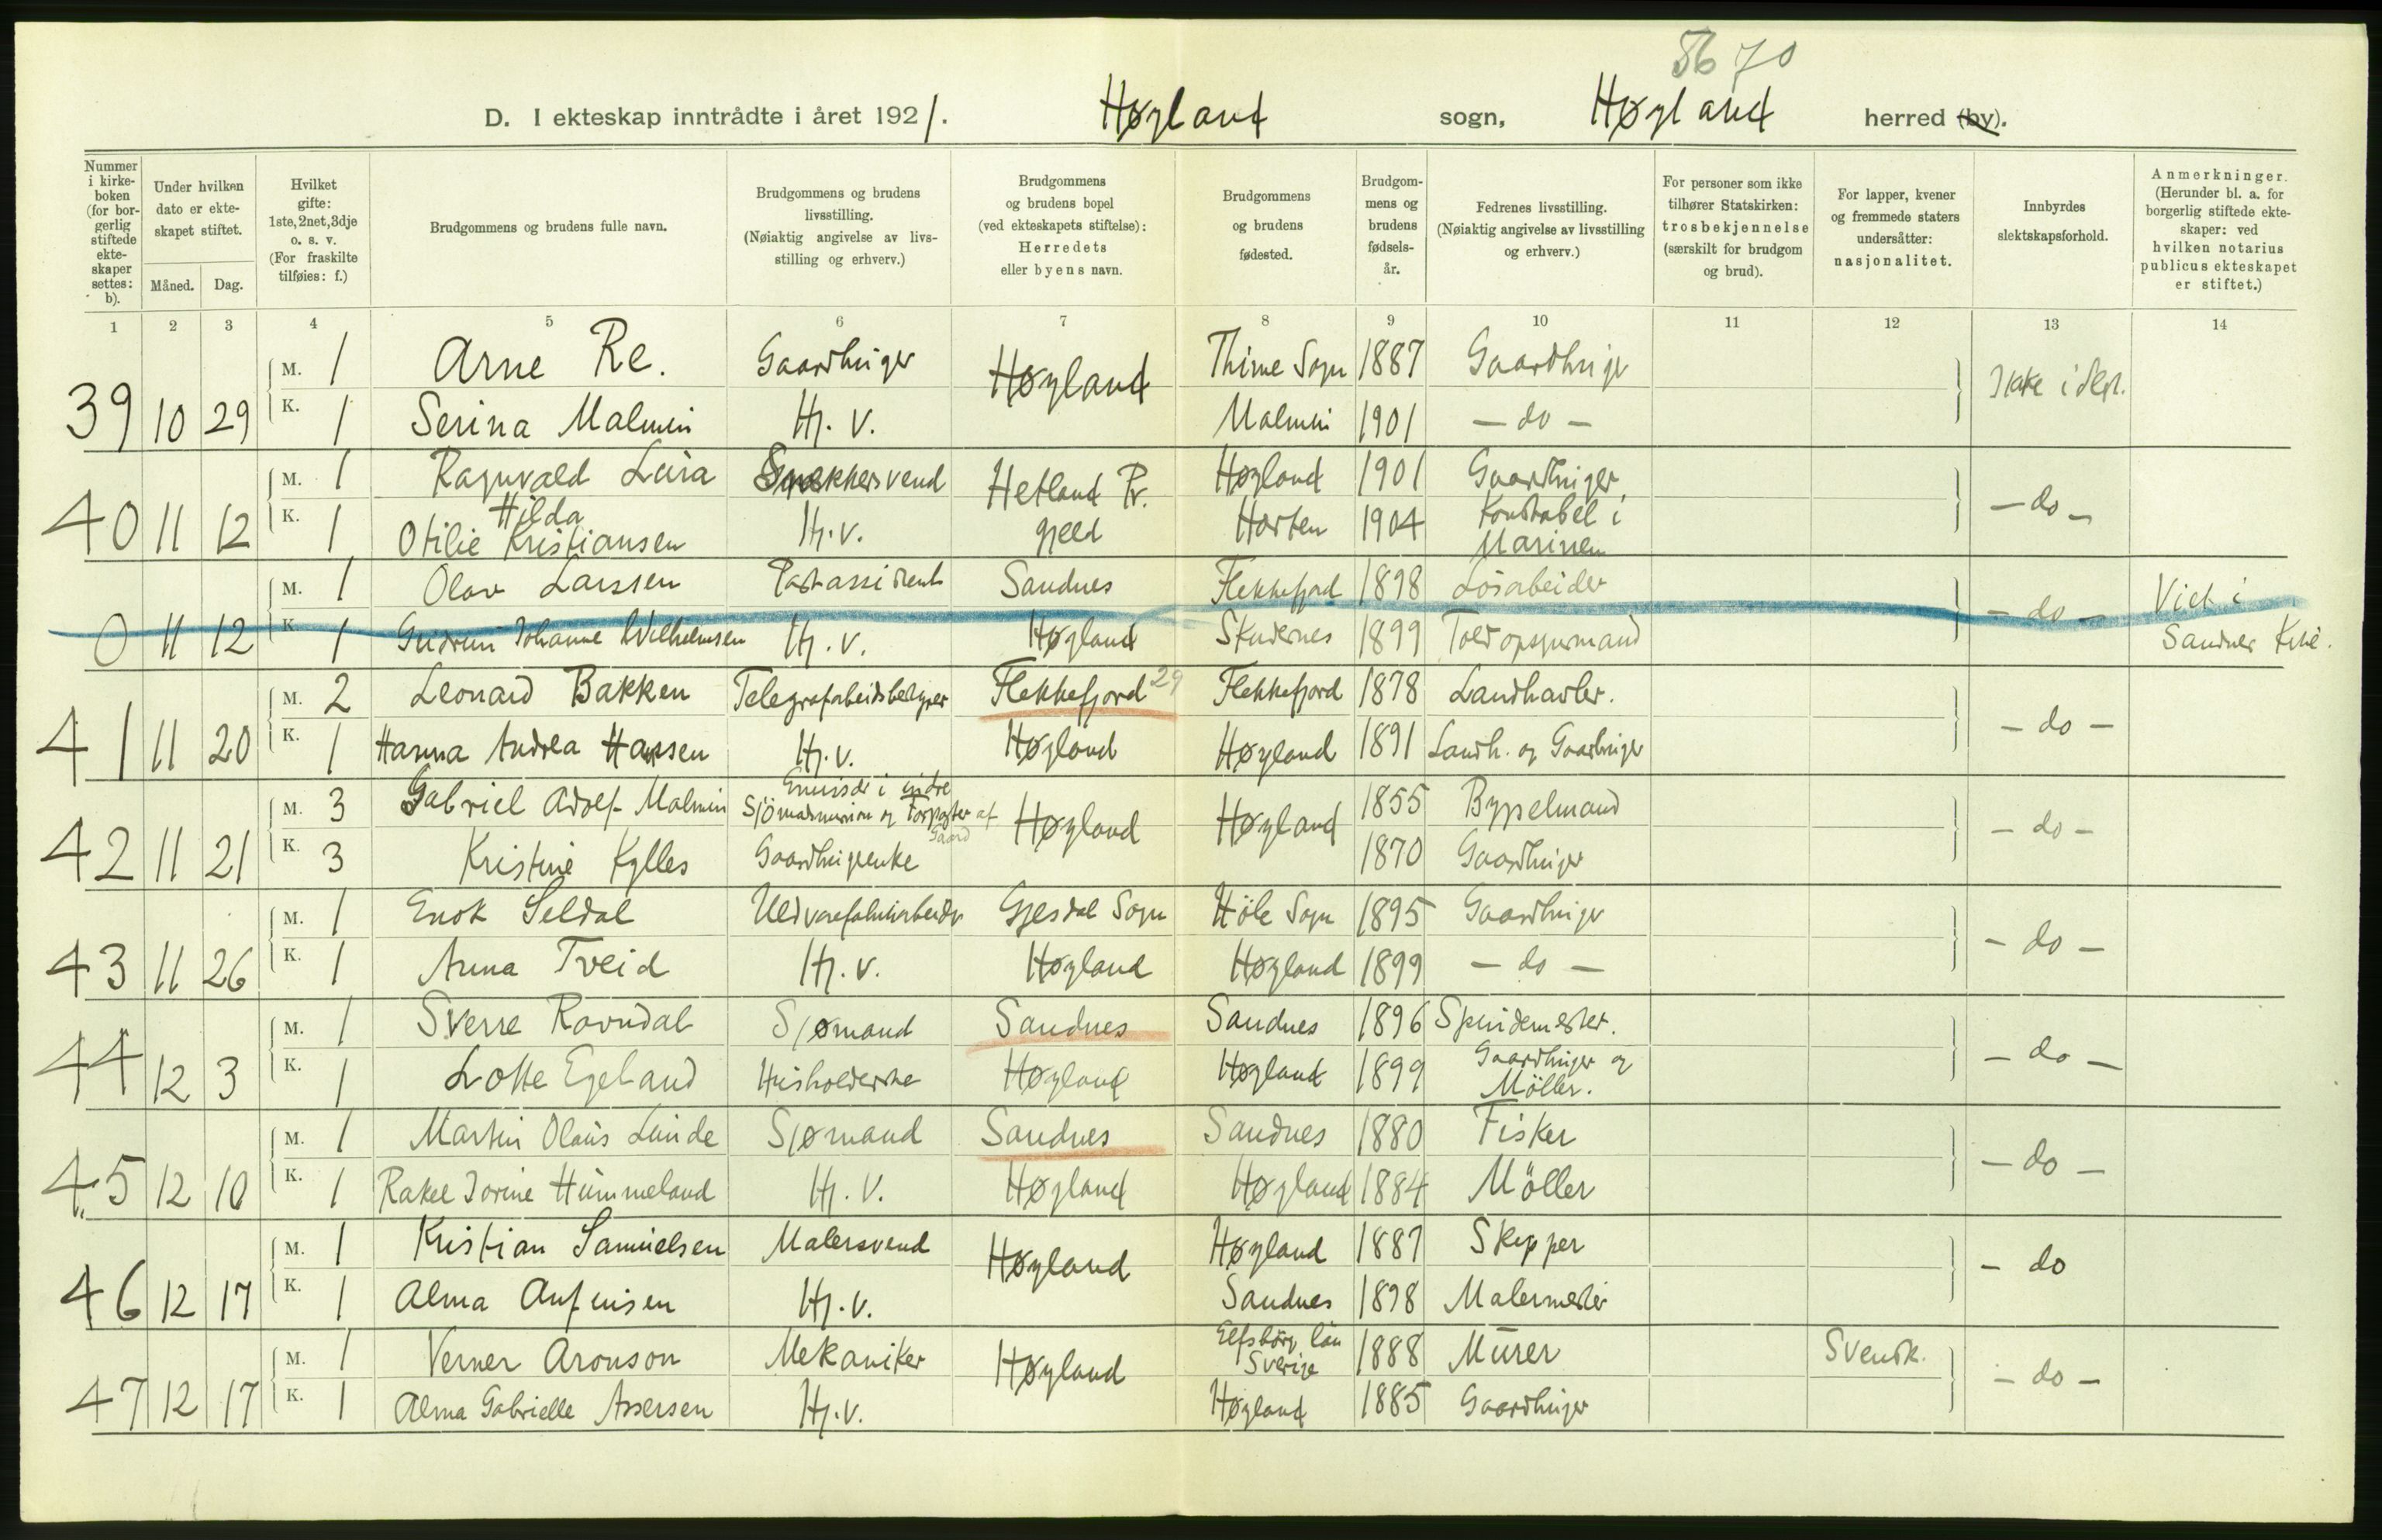 56 70
D. I ekteskap inntrådte i året 1921. Høyland sogn, Høyland herred (by).
Nummer i kirke-boken (for bor-gerlig stiftede ekte-skaper settes: b).
Under hvilken dato er ekte-skapet stiftet.
Måned. Dag.
Hvilket gifte: 1ste, 2net, 3dje o. s. v. (For fraskilte tilføies: f.)
Brudgommens og brudens fulle navn.
Brudgommens og brudens livsstilling. (Nøiaktig angivelse av livs-stilling og erhverv.)
Brudgommens og brudens bopel (ved ekteskapets stiftelse): Herredets eller byens navn.
Brudgommens og brudens fødested.
Brudgom-mens og brudens fødsels-år.
Fedrenes livsstilling. (Nøiaktig angivelse av livsstilling og erhverv.)
For personer som ikke tilhører Statskirken: trosbekjennelse (særskilt for brudgom og brud).
For lapper, kvener og fremmede staters undersåtter: nasjonalitet.
Innbyrdes slektskapsforhold.
Anmerkninger. (Herunder bl. a. for borgerlig stiftede ekte-skaper: ved hvilken notarius publicus ekteskapet er stiftet.)
1 2 3 4 5 6 7 8 9 10 11 12 13 14
M. 1 Arne Re. Gaardbruger Høyland Thime Sogn 1887 Gaardbruger Ikke i slgt.
39 10 29 K. 1 Serina Malmin Hj. v. Malmin 1901 - do -
M. 1 Ragnvald Lura Snekkersvend Hetland Pr. Høyland 1901 Gaardbruger - do -
Hilda
40 11 12 K. 1 Otilie Kristiansen Hj. v. gjeld Horten 1904 Konstabel i Marinen
M. 1 Olav Larssen Postassistent Sandnes Flekkefjord 1898 Løsarbeider - do - Viet i
0 11 12 K. 1 Gudrun Johanne Wilhelmsen Hj. v. Høyland Skudenes 1899 Toldopsynsmand Sandnes Kirke.
M. 2 Leonard Bakken Telegrafarbeidsbestyrer Flekkefjord 29 Flekkefjord 1878 Landhandler. - do -
41 11 20 K. 1 Hanna Andrea Hanssen Hj. v. Høyland Høyland 1891 Landh. og Gaardbruger
M. 3 Gabriel Adolf Malmin Emissær i indre Sjömandsmission og Forpagter af Gaard Høyland Høyland 1855 Bygselmand - do -
42 11 21 K. 3 Kristine Kylles Gaardbrugerenke 1870 Gaardbruger
M. 1 Enok Seldal Uldvarefabrikarbeider Gjesdal Sogn Höle Sogn 1895 Gaardbruger - do -
43 11 26 K. 1 Anna Tveid Hj. v. Høyland Høyland 1899 - do -
M. 1 Sverre Ravndal Sjømand Sandnes Sandnes 1896 Spindemester. - do -
44 12 3 K. 1 Lotte Egeland Husholderske Høyland Høyland 1899 Gaardbruger og Möller.
M. 1 Martin Olaus Lunde Sjømand Sandnes Sandnes 1880 Fisker - do -
45 12 10 K. 1 Rakel Jorine Hummeland Hj. V. Høyland Høyland 1884 Möller
M. 1 Kristian Samuelsen Malersvend Høyland Høyland 1887 Skipper - do
46 12 17 K. 1 Alma Aufinsen Hj. v. Sandnes 1898 Malermester
M. 1 Verner Aronson Mekaniker Høyland Elfsborg län Sverige 1888 Murer Svensk. - do -
47 12 17 K. 1 Alma Gabrielle Assersen Hj. v. Høyland 1885 Gaardbruger